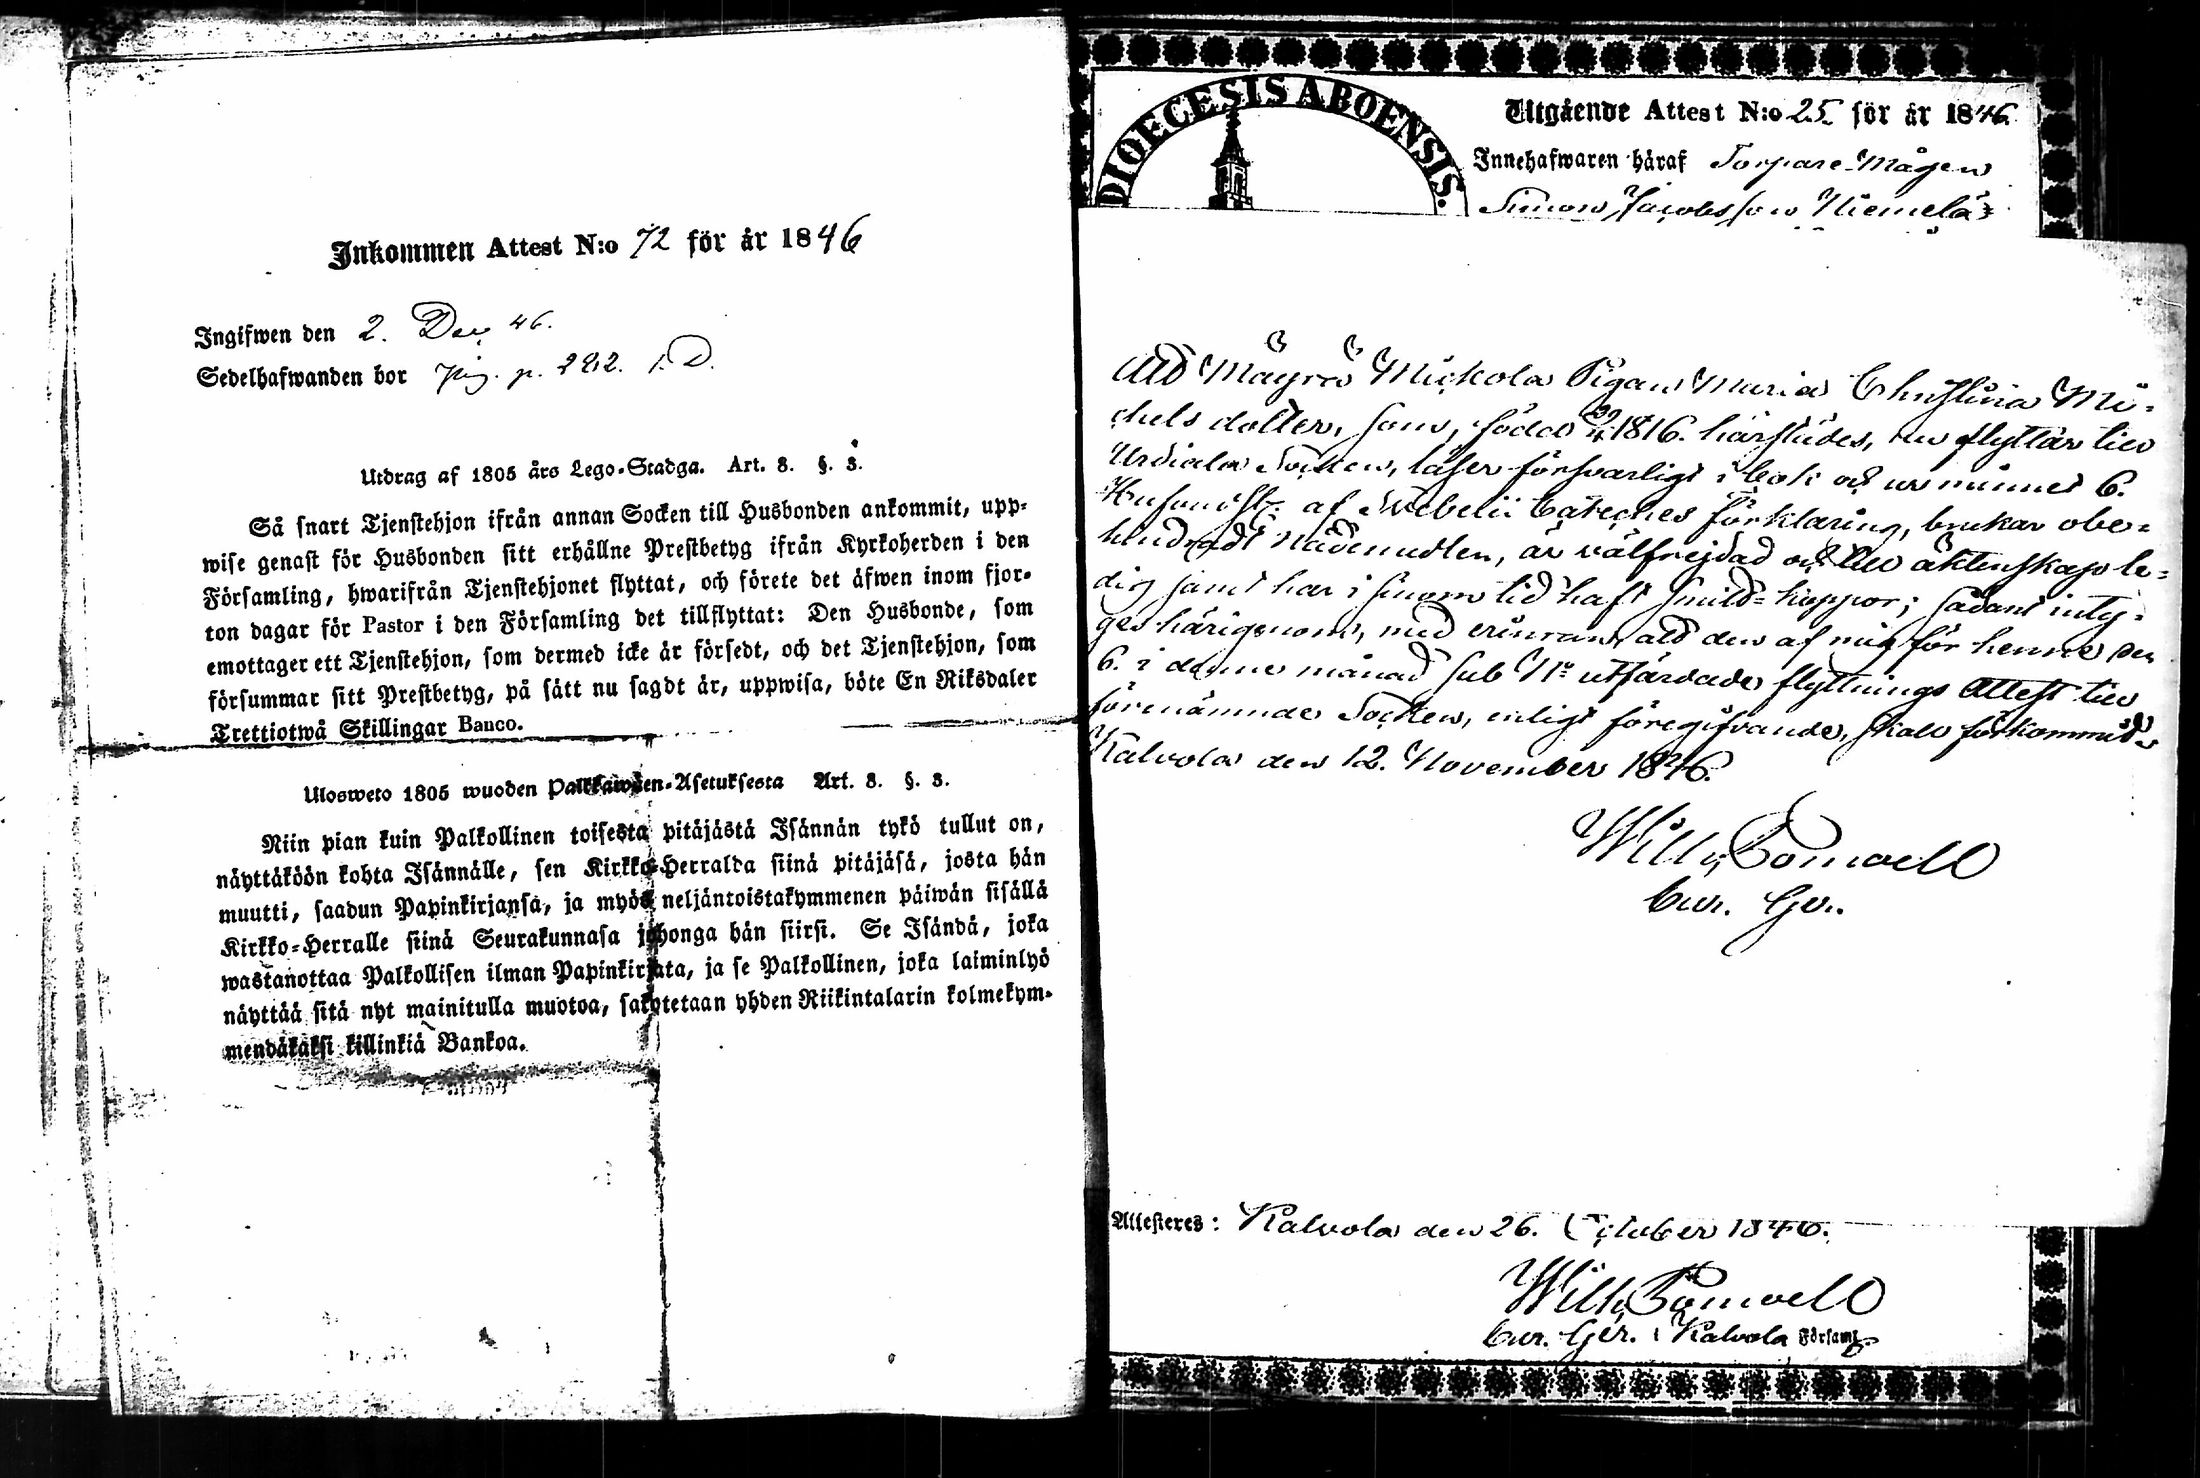 Inkommen Attest N:o 72 för år 1846
Ingifwen den 2. Dec. 46.
Sedelhafwanden bor Pig. p. 222. 1. D.
Utdrag af 1805 års Lego-Stadga. Art. 8. §. 3.
Så snart Tjenstehjon ifrån annan Socken till Husbonden ankommit, upp-
wise genast för Husbonden sitt erhållne Prestbetyg ifrån Kyrkoherden i den
Församling, hwarifrån Tjenstehjonet flyttat, och förete det äfwen inom fjor-
ton dagar för Pastor i den Församling det tillflyttat: Den Husbonde, som
emottager ett Tjenstehjon, som dermed icke är försedt, och det Tjenstehjon, som
försummar sitt Prestbetyg, på sätt nu sagdt är, uppwisa, böte En Riksdaler
Trettiotwå Skillingar Banco.
Ulosweto 1805 wuoden Palkkawäen-Asetuksesta Art. 8. §. 3.
Niin pian kuin Palkollinen toisesta pitäjästä Isännän tykö tullut on,
näyttäköön kohta Isännälle, sen Kirkko-Herralda siinä pitäjäsä, josta hän
muutti, saadun Papinkirjansa, ja myös neljäntoistakymmenen päiwän sisällä
Kirkko-Herralle siinä Seurakunnasa johonga hän siirsi. Se Isändä, joka
wastanottaa Palkollisen ilman Papinkirjata, ja se Palkollinen, joka laiminlyö
näyttää sitä nyt mainitulla muotoa, sakotetaan yhden Riikintalarin kolmekym-
mendäkaksi killinkiä Bankoa.
DIOECESIS ABOENSIS.
Utgående Attest N:o 25 för år 1846.
Innehafwaren häraf Torpare-Mågen
Simon Jacobsson Niemelä
Att Mäyrä Mickola Pigan Maria Christina Mi-
chels dotter, som, född 1816. härstädes, nu flyttar till
Urdiala Socken, läser försvarligt i bok och ur minnet 6.
Hufvudst. af Svebelii Cateches förklaring, brukar obe-
hindradt nådemedlen, är välfrejdad och till äktenskap le-
dig samt har i sinom tid haft smitt-koppor; sådant inty-
gas härigenom, med erinran, att den af mig för henne den
6. i denne månad sub No utfärdade flyttnings Attest till
förenämnde Socken, enligt föregifvande, skall förkommit.
Kalvola den 12. November 1846.
Wilh. Bomvell
Cur. Ger.
Attesteres: Kalvola den 26. October 1846.
Wilh. Bomvell
Cur. Ger. i Kalvola Församl.